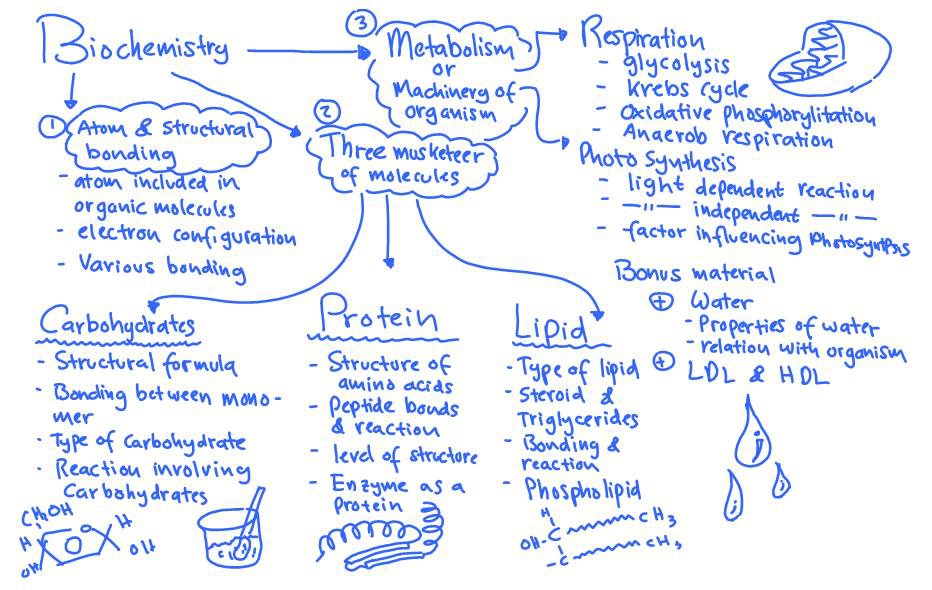 Biochemistry
①
Atom & Structural
bonding
- atom included in
organic molecules
- electron configuration
- Various bonding
②
Three musketeer
of molecules
③
Metabolism
or
Machinery of
organism
Respiration
- glycolysis
- Krebs cycle
- Oxidative phosphorylitation
- Anaerob respiration
Photo Synthesis
- light dependent reaction
- —"— independent —"—
- factor influencing photosyntpsis
Bonus material
⊕ Water
- Properties of water
- relation with organism
⊕ LDL & HDL
Carbohydrates
- Structural formula
- Bonding between mono-
mer
- Type of Carbohydrate
- Reaction involving
Carbohydrates
CH₂OH
O
H
H
OH
OH
Protein
- Structure of
amino acids
- Peptide bonds
& reaction
- level of structure
- Enzyme as a
Protein
Lipid
- Type of lipid
- Steroid &
Triglycerides
- Bonding &
reaction
- Phospholipid
H
OH-C CH₃
-C CH₃